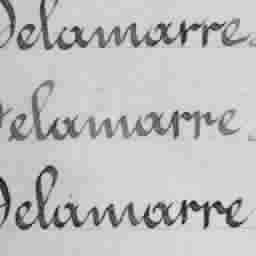 Delamarre
Delamarre
Delamarre